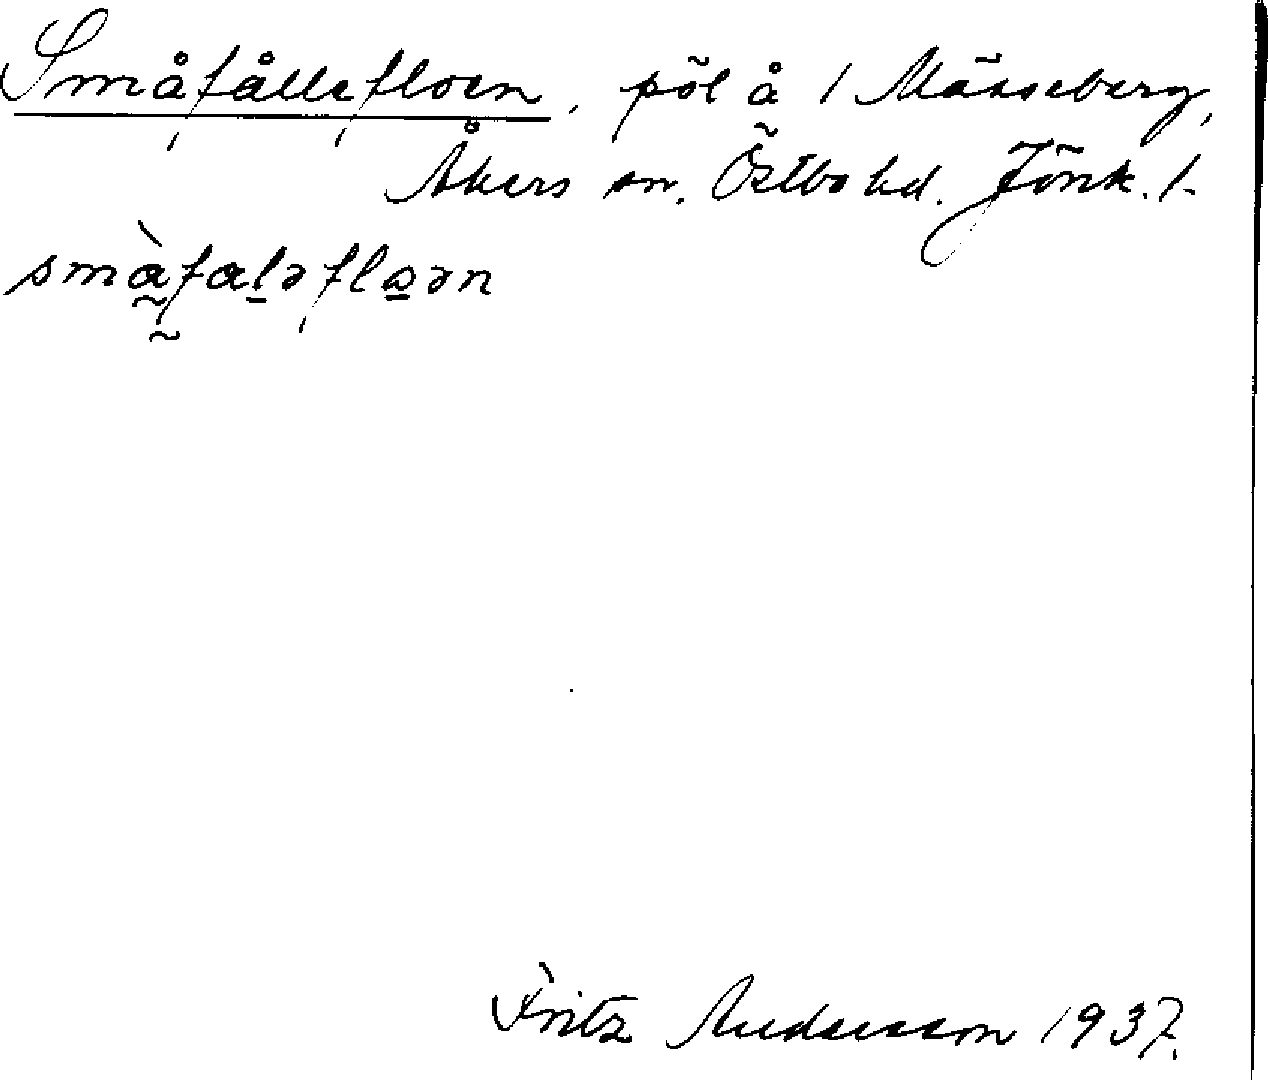 Småfållefloen, pöl å 1 Mässeberg,
Åkers sn. Östbo hd. Jönk. l.
småfaləfloən
Fritz Andersson 1937.